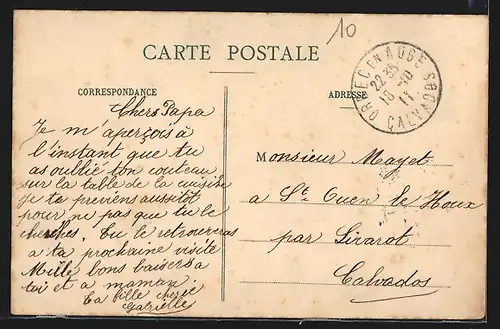 10
CARTE POSTALE
CORRESPONDANCE
ADRESSE
ORBEC EN AUGE
22 35
18 - 10
11
CALVADOS
Chers Papa
Je m'aperçois à
l'instant que tu
as oublié ton couteau
sur la table de la cuisine
je te préviens aussitôt
pour ne pas que tu le
cherches. Tu le retrouveras
a ta prochaine visite
Mille bons baisers a
toi et a maman.
ta fille chérie
Gabrielle
Monsieur Mayet
a St Ouen le Houx
par Livarot
Calvados